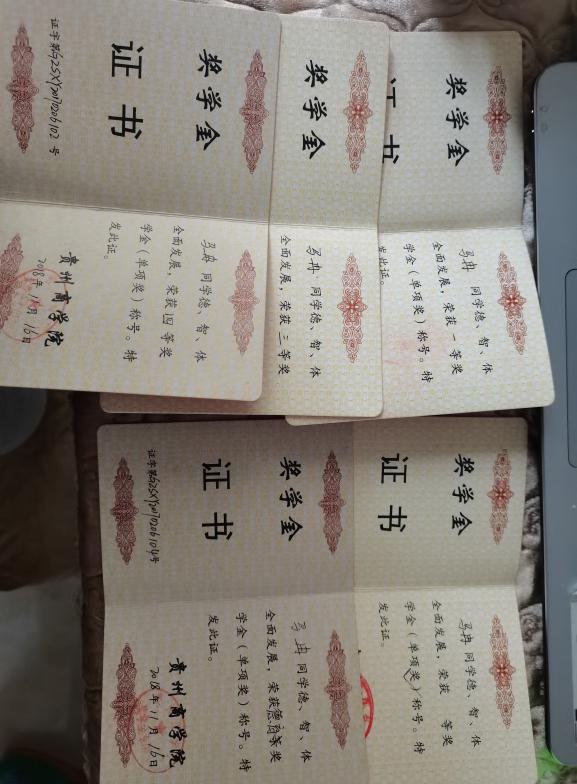 奖学金
证书
证字第GZSXY20170206102号
马冉 同学德、智、体
全面发展，荣获 四 等奖
学金（单项奖）称号。特
发此证。
贵州商学院
2018年11月16日
奖学金
马冉 同学德、智、体
全面发展，荣获 三 等奖
奖学金
证书
马冉 同学德、智、体
全面发展，荣获 一 等奖
学金（单项奖）称号。特
发此证。
奖学金
证书
马冉 同学德、智、体
全面发展，荣获 等奖
学金（单项奖）称号。特
发此证。
贵州商学院
2018年11月16日
奖学金
证书
马冉 同学德、智、体
全面发展，荣获 等奖
学金（单项奖）称号。特
发此证。